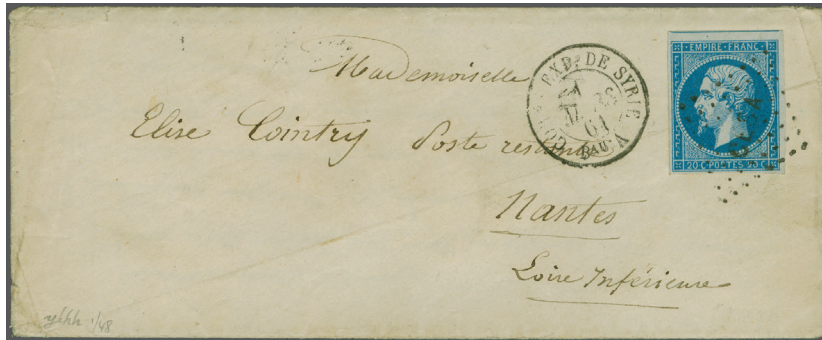 Mademoiselle
Elise Cointry Poste restante
Nantes
Loire Inférieure
EXP. DE SYRIE
61
Bau A
EMPIRE FRANC
20 C POSTES 20 C